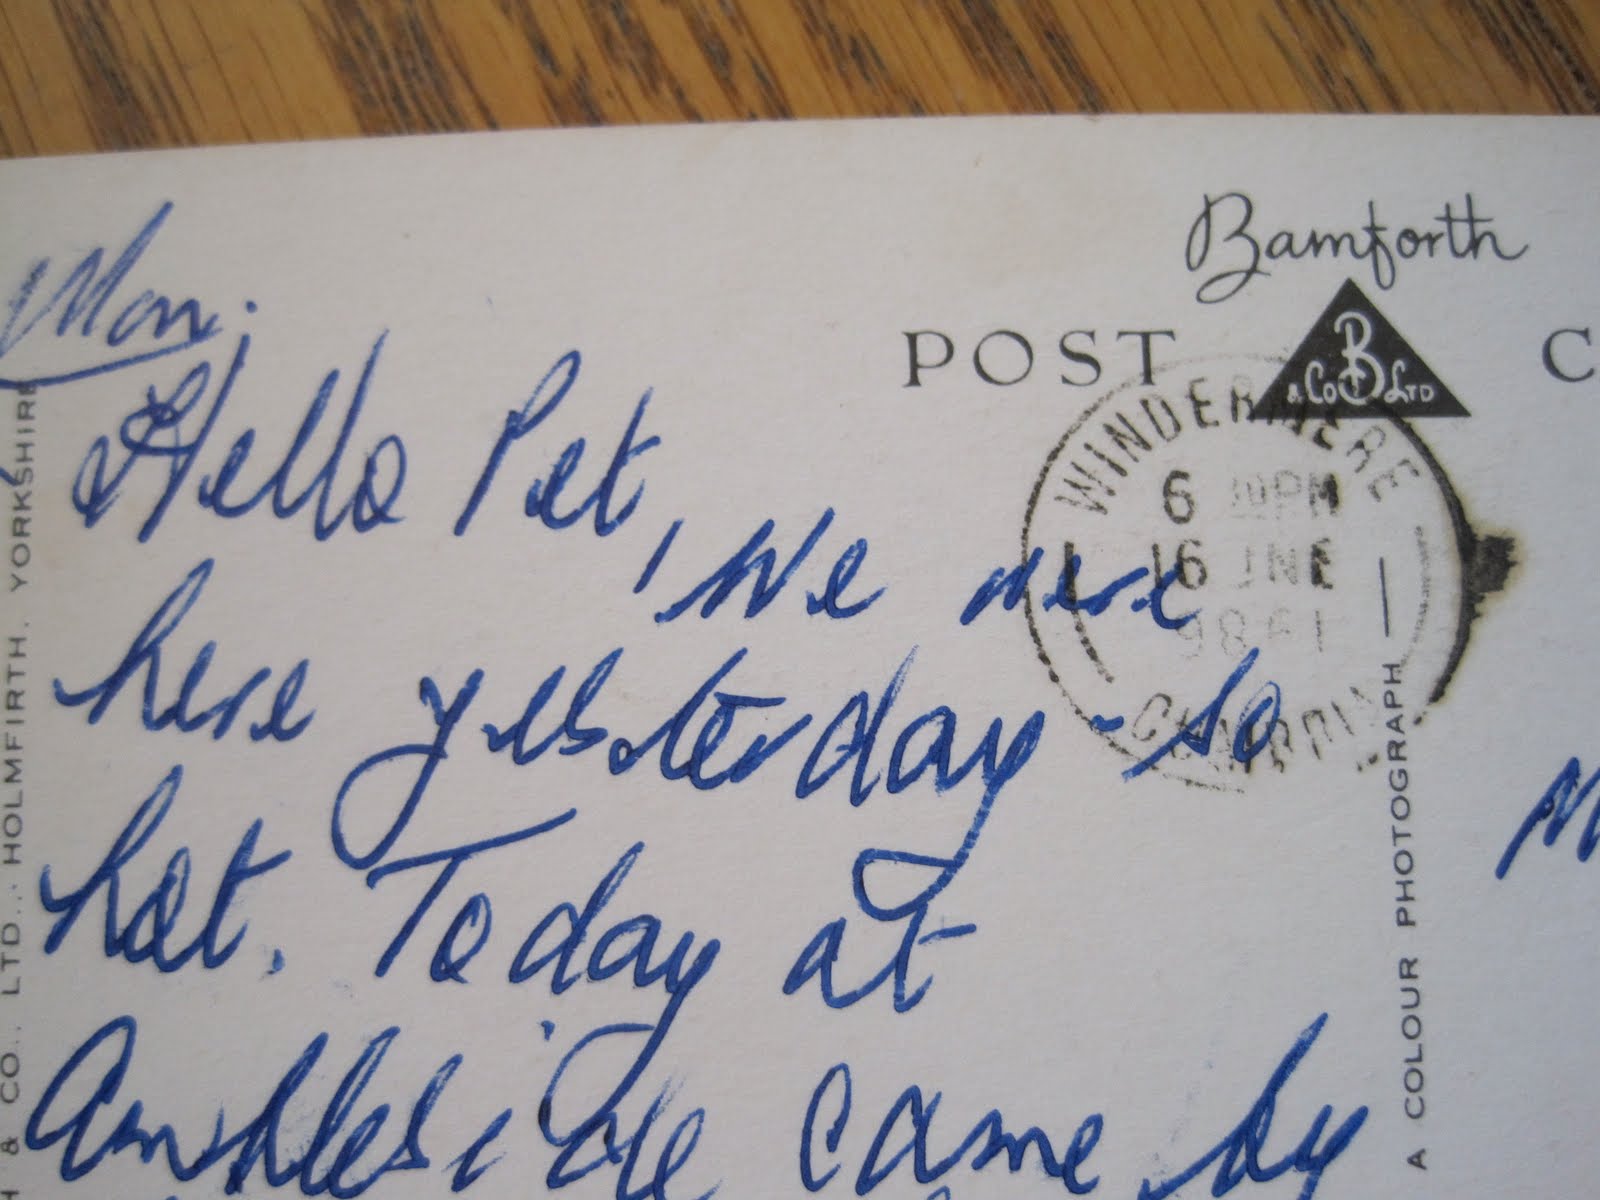 Mon.
Hello Pet, We were
here yesterday - so
hot. Today at
Ambleside came by
Bamforth
POST
B
& CO LTD
C
WINDERMERE
6 PM
16 JNE
CUMBRIA
A COLOUR PHOTOGRAPH
& CO., LTD., HOLMFIRTH, YORKSHIRE